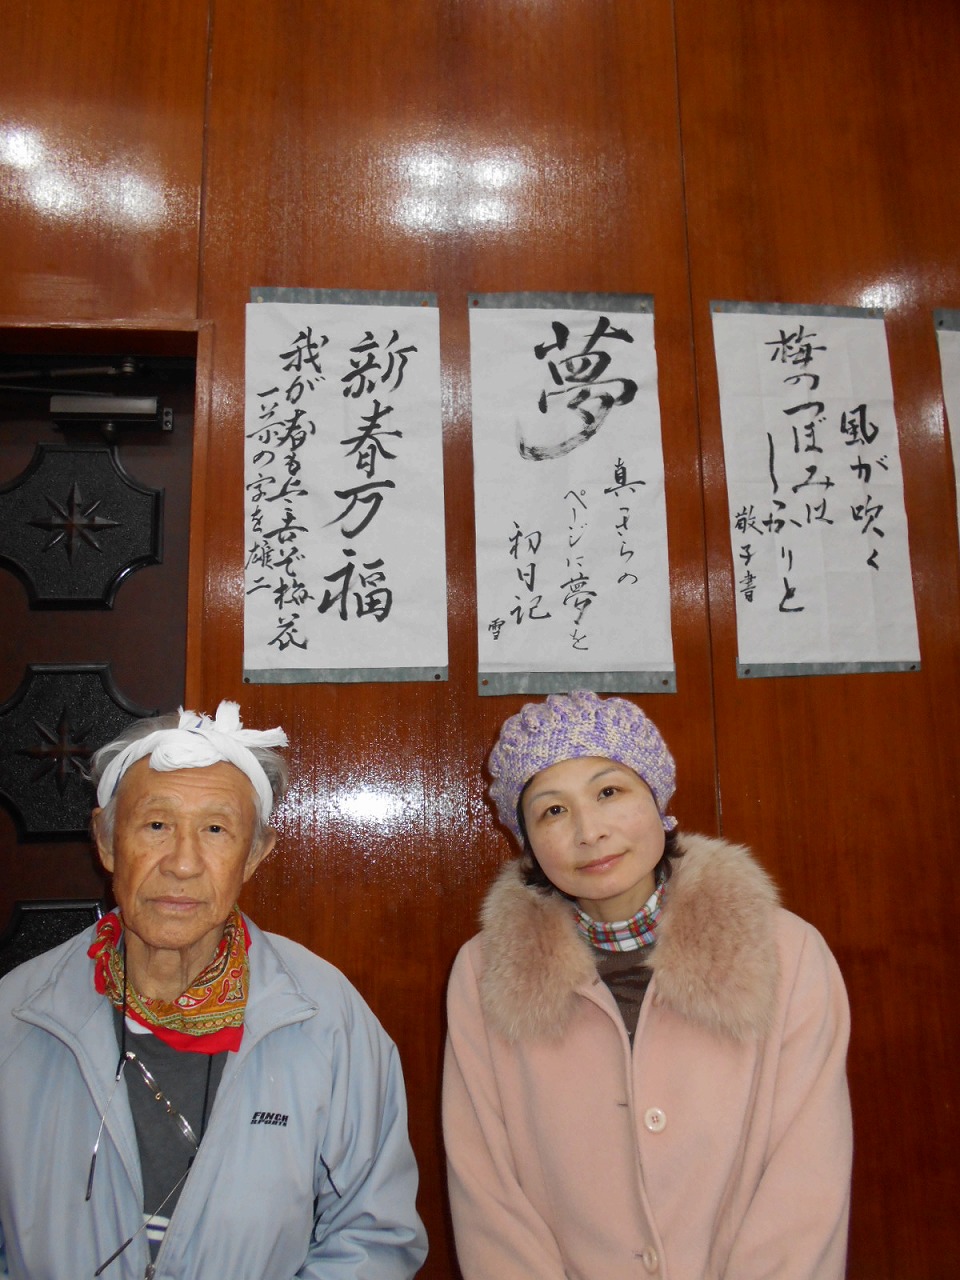 風が吹く
梅のつぼみは
しっかりと
敬子書
夢
真っさらの
ページに夢を
初日記
雪
新春万福
我が春も上々吉ぞ梅花
一茶の字を雄二
FINCH
SPORTS